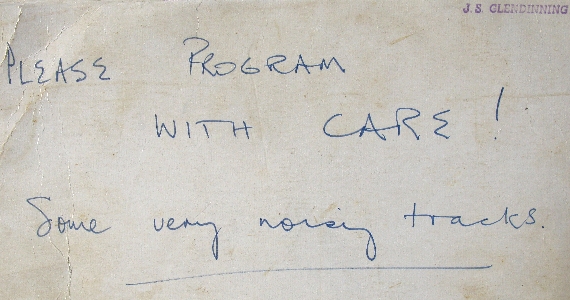 J. S. GLENDINNING
PLEASE PROGRAM
WITH CARE!
Some very noisy tracks.